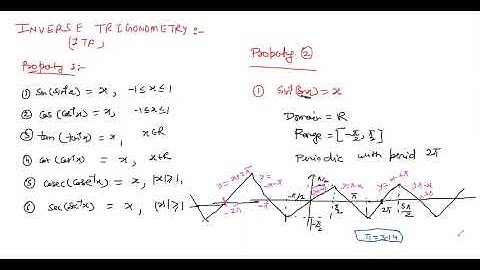 INVERSE TRIGONOMETRY :-
(ITF)
Property :-
① sin(sin⁻¹x) = x , -1≤x≤1
② cos (cos⁻¹x) = x , -1≤x≤1
③ tan (tan⁻¹x) = x , x∈R
④ cot (cot⁻¹x) = x , x∈R
⑤ cosec(cosec⁻¹x) = x , |x|≥1,
⑥ sec(sec⁻¹x) = x , |x|≥1
Property ②
① sin⁻¹(sinx) = x
Domain = R
Range = [-π/2, π/2]
Periodic with period 2π
y=x+2π
-2π
-π
-π/2
π/2
-π/2
π/2
y=π-x
π
y=x-2π
2π
5π/2
3π
π=3.14